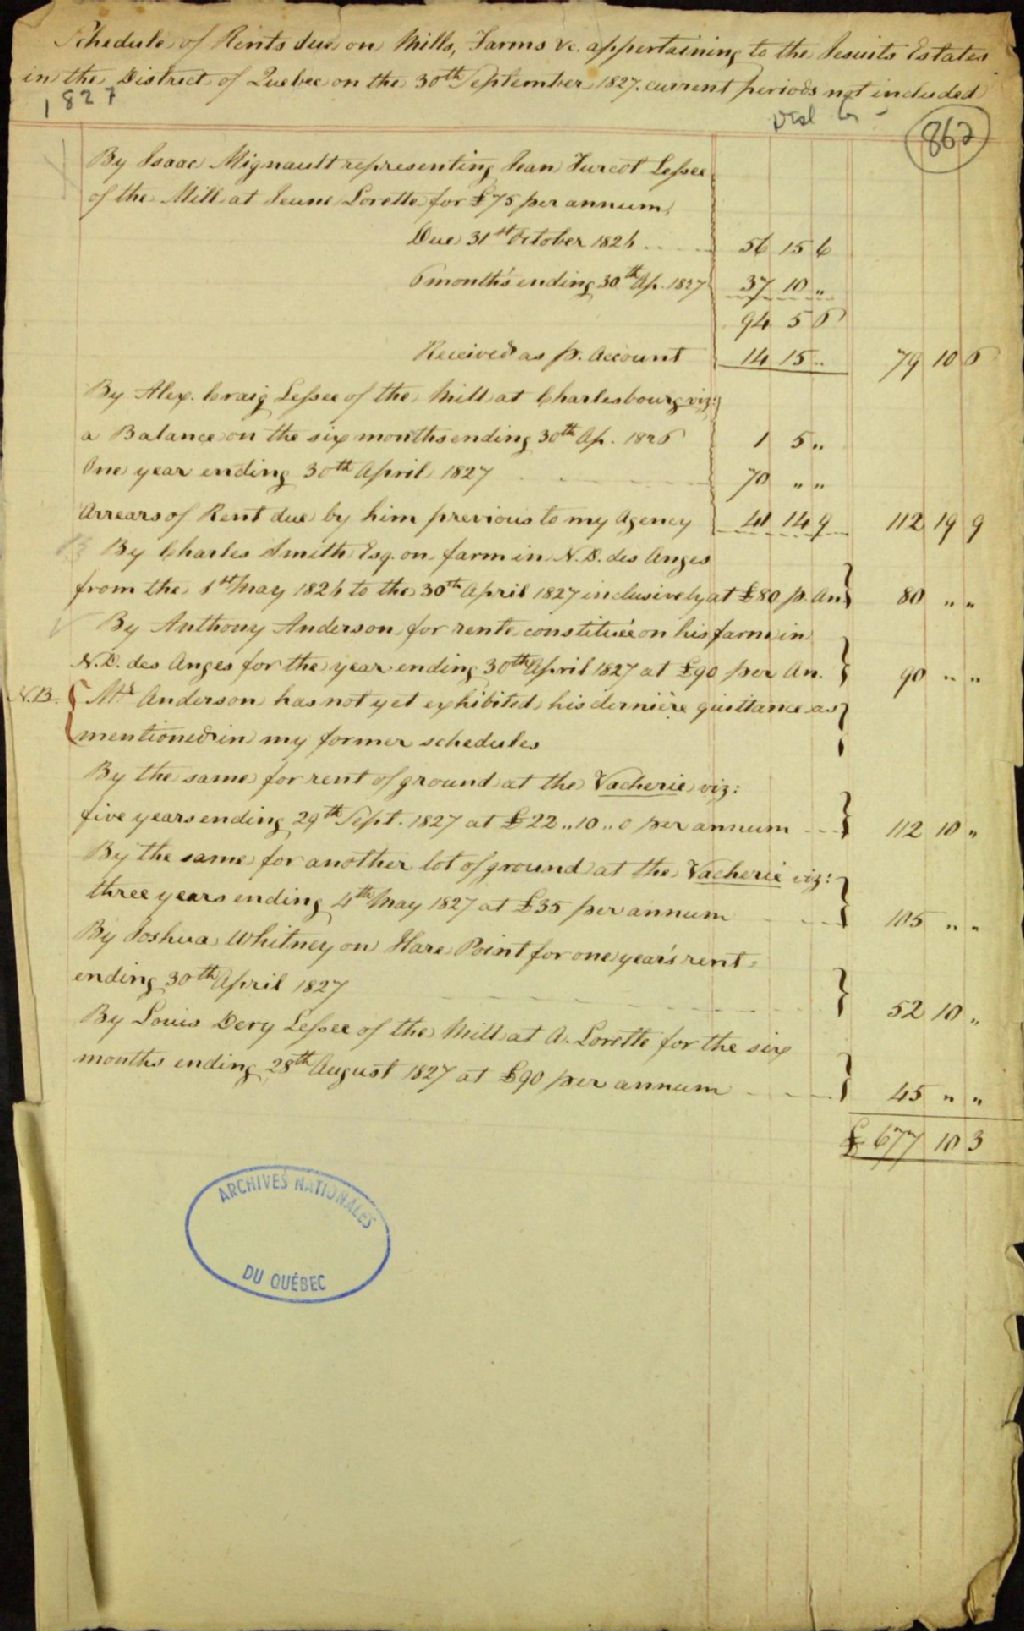 Schedule of Rents due on Mills, Farms &c. appertaining to the Jesuits Estates
in the District of Quebec on the 30th September 1827. current periods not included
1827
862
By Isaac Mignault representing Jean Turcot Lessee
of the Mill at Jeune Lorette for £75 per annum,
Due 31st October 1826 56 15 6
6 months ending 30th Ap. 1827 37 10 "
94 5 6
Received as p. Account 14 15 " 79 10 6
By Alex. Craig Lessee of the Mill at Charlesbourg viz:
a Balance on the six months ending 30th Ap. 1826 1 5 "
One year ending 30th April 1827 70 " "
Arrears of Rent due by him previous to my Agency 41 14 9 112 19 9
By Charles Smith Esq. on farm in N.D. des Anges
from the 1st May 1826 to the 30th April 1827 inclusively at £80 p. An 80 " "
By Anthony Anderson for rente constituée on his farm in
N.D. des Anges for the year ending 30th April 1827 at £90 per An. 90 " "
N.B. Mr Anderson has not yet exhibited his dernière quittance as
mentioned in my former schedules
By the same for rent of ground at the Vacherie viz:
five years ending 29th Sept. 1827 at £22 "10 "0 per annum 112 10 "
By the same for another lot of ground at the Vacherie viz:
three years ending 4th May 1827 at £35 per annum 105 " "
By Joshua Whitney on Hare Point for one year's rent
ending 30th April 1827 52 10 "
By Louis Dery Lessee of the Mill at A. Lorette for the six
months ending 28th August 1827 at £90 per annum 45 " "
£ 677 10 3
ARCHIVES NATIONALES
DU QUÉBEC